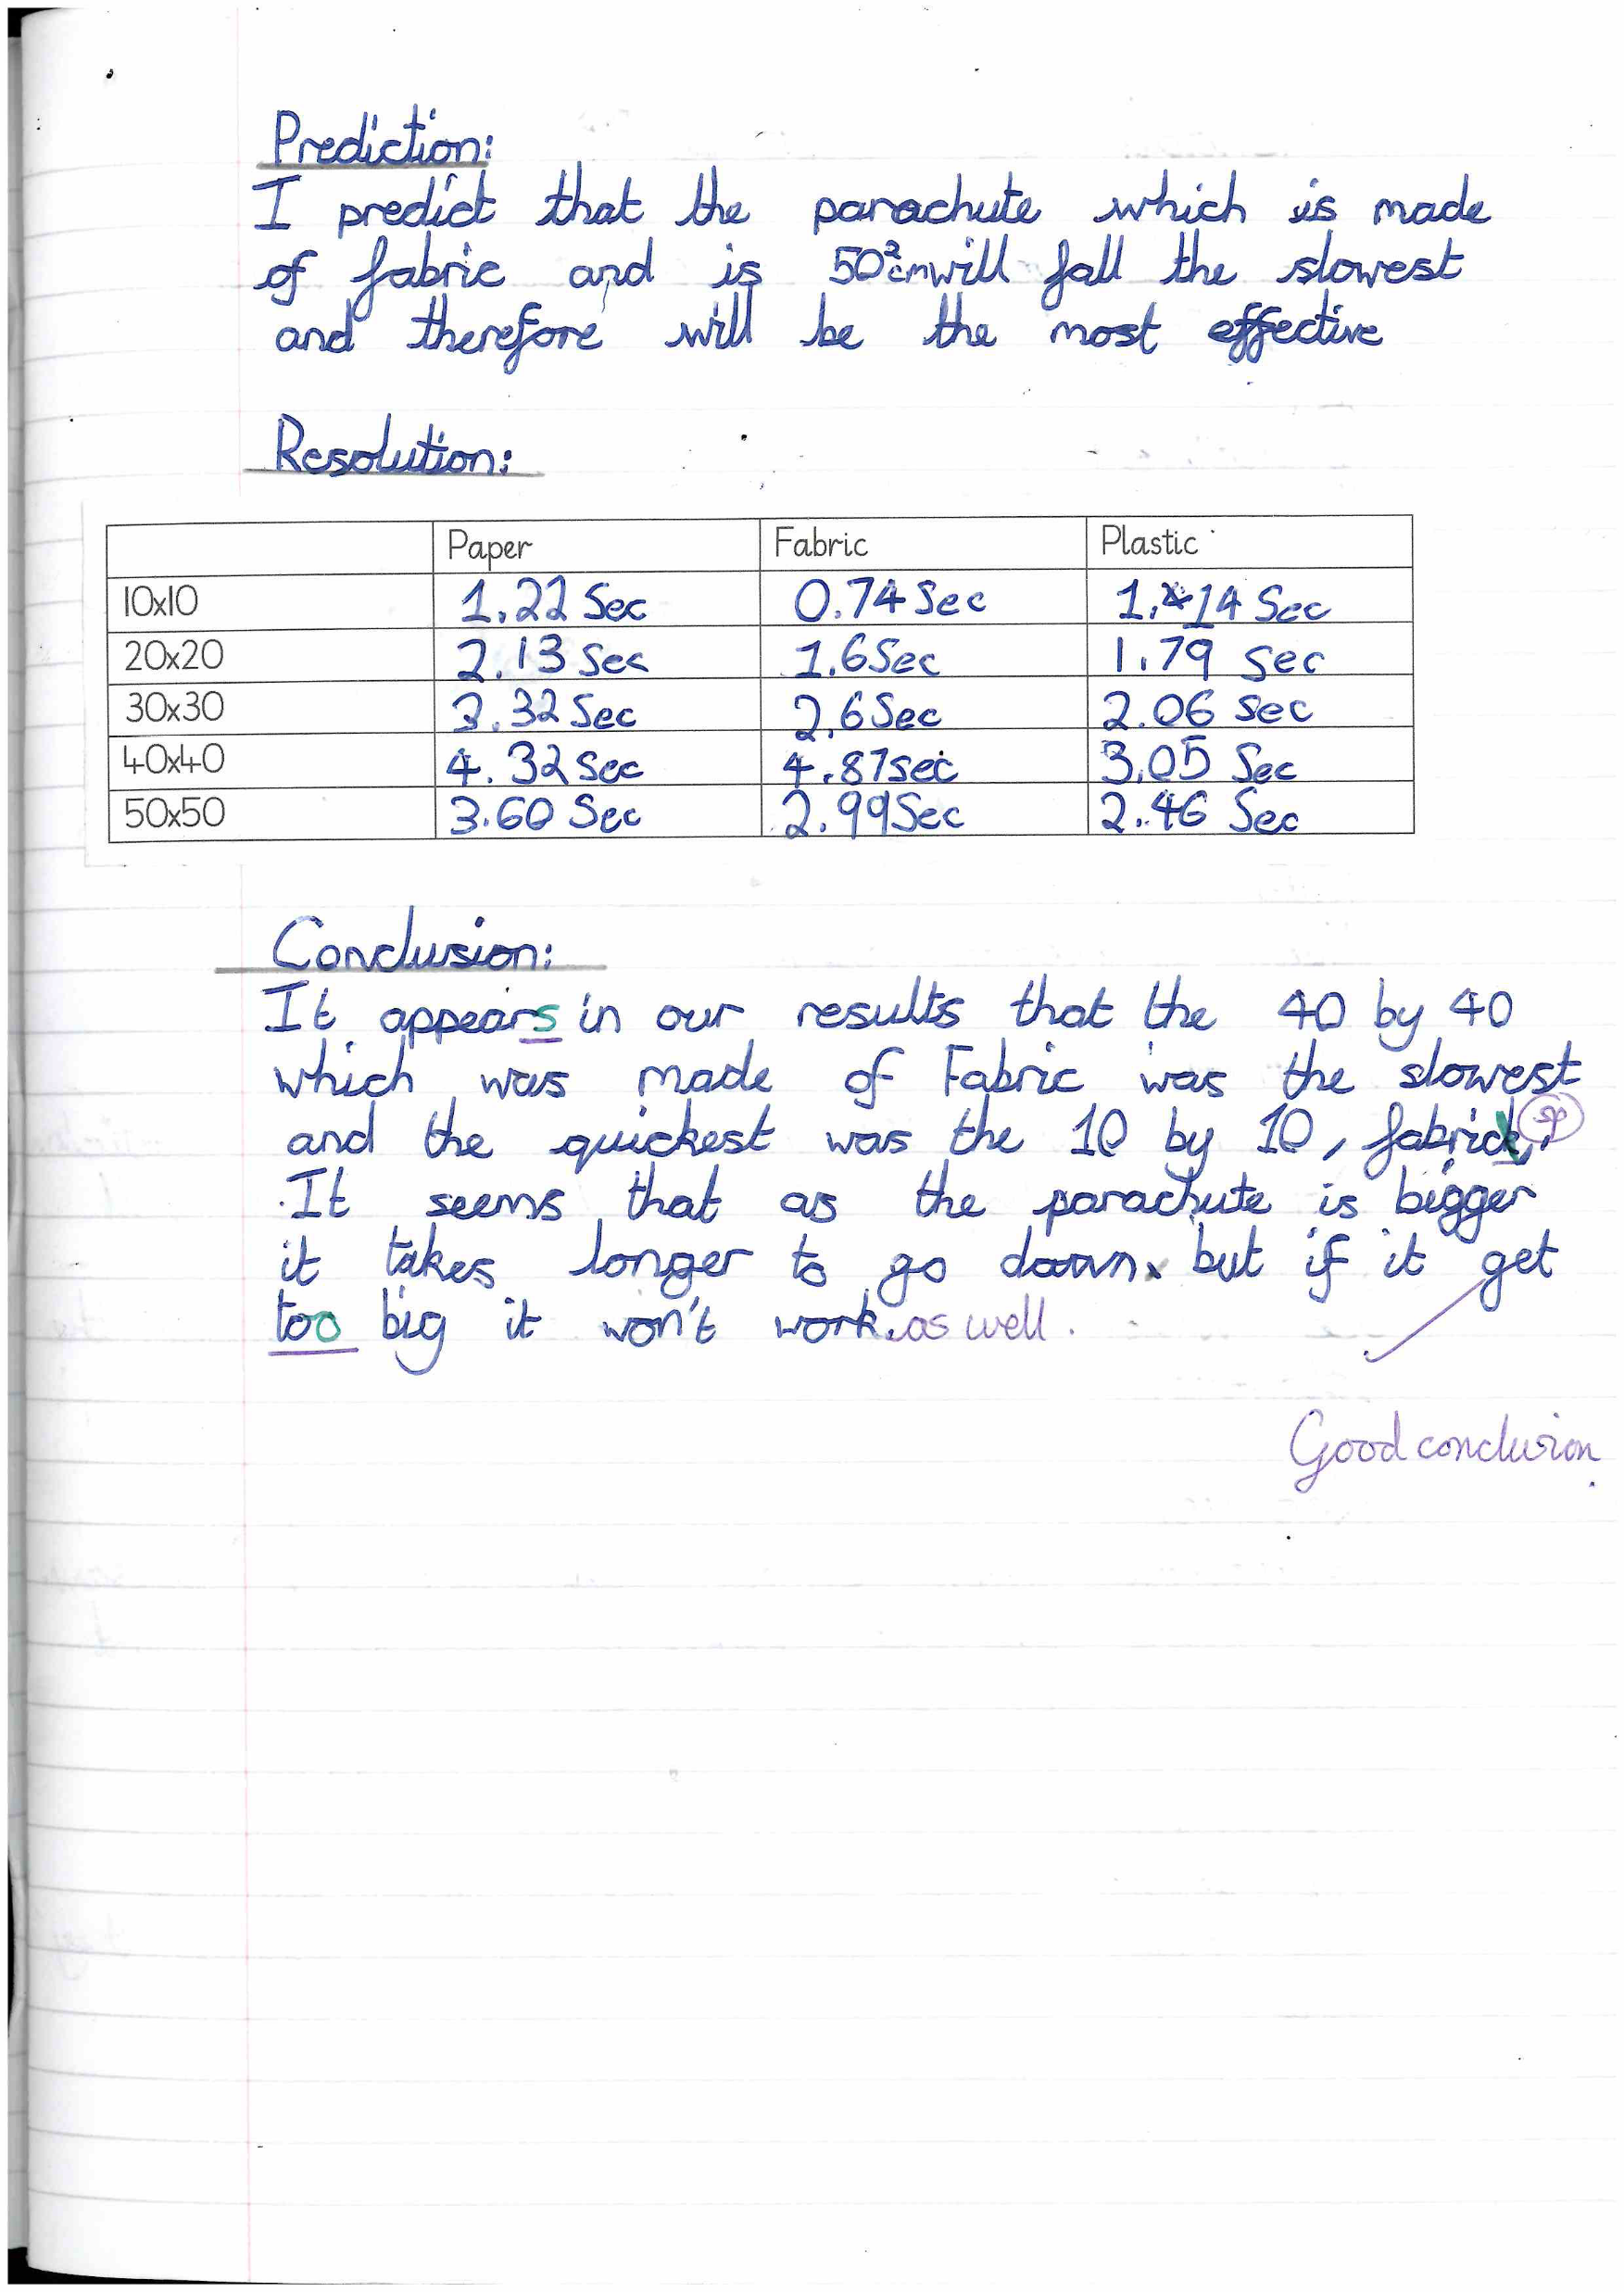 Prediction:
I predict that the parachute which is made
of fabric and is 50²cm will fall the slowest
and therefore will be the most effective
Resolution:
Paper Fabric Plastic
10x10 1.22 Sec 0.74 Sec 1.14 Sec
20x20 2.13 Sec 1.6 Sec 1.79 Sec
30x30 3.32 Sec 2.6 Sec 2.06 Sec
40x40 4.32 Sec 4.87 sec 3.05 Sec
50x50 3.60 Sec 2.99 Sec 2.46 Sec
Conclusion:
It appears in our results that the 40 by 40
which was made of Fabric was the slowest
and the quickest was the 10 by 10, fabric. sp
It seems that as the parachute is bigger
it takes longer to go down. but if it get
too big it won't work. as well.
Good conclusion.